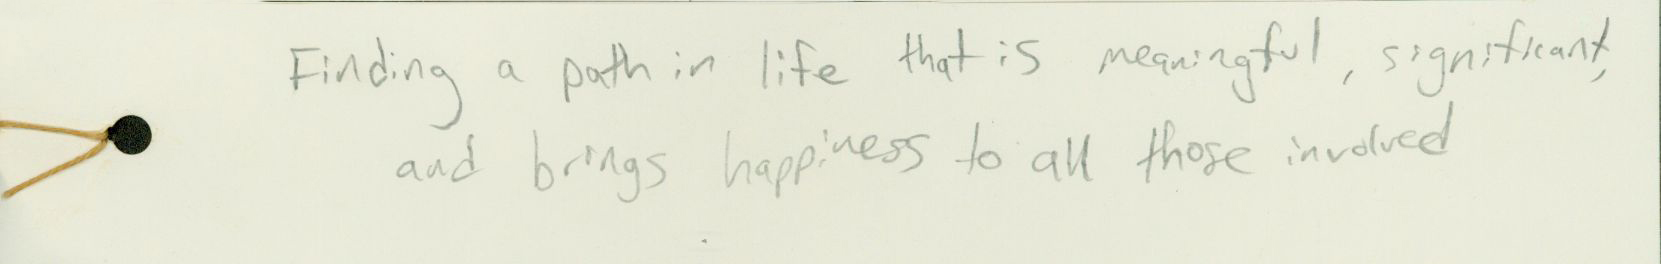 Finding a path in life that is meaningful, significant,
and brings happiness to all those involved